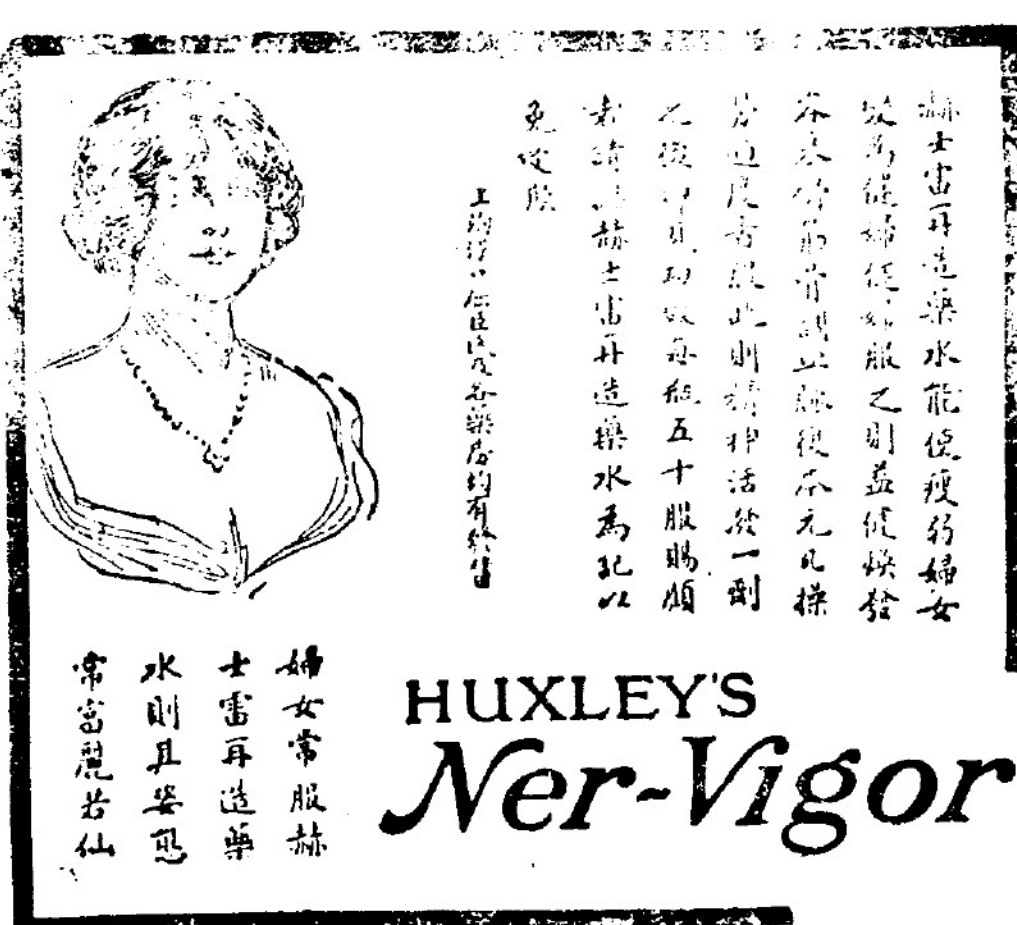 赫士雷再造藥水能使瘦弱婦女
為健婦健婦服之則益健煥發
本水筋骨調血脈復本元凡操
勞過度者服此則精神活潑一劑
之後即見功效每瓶五十服賜顧
者請認赫士雷再造藥水為記以
免
上海藥房均有發售
婦女常服赫
士雷再造藥
水則其姿態
常富麗若仙
HUXLEY'S
Ner-Vigor